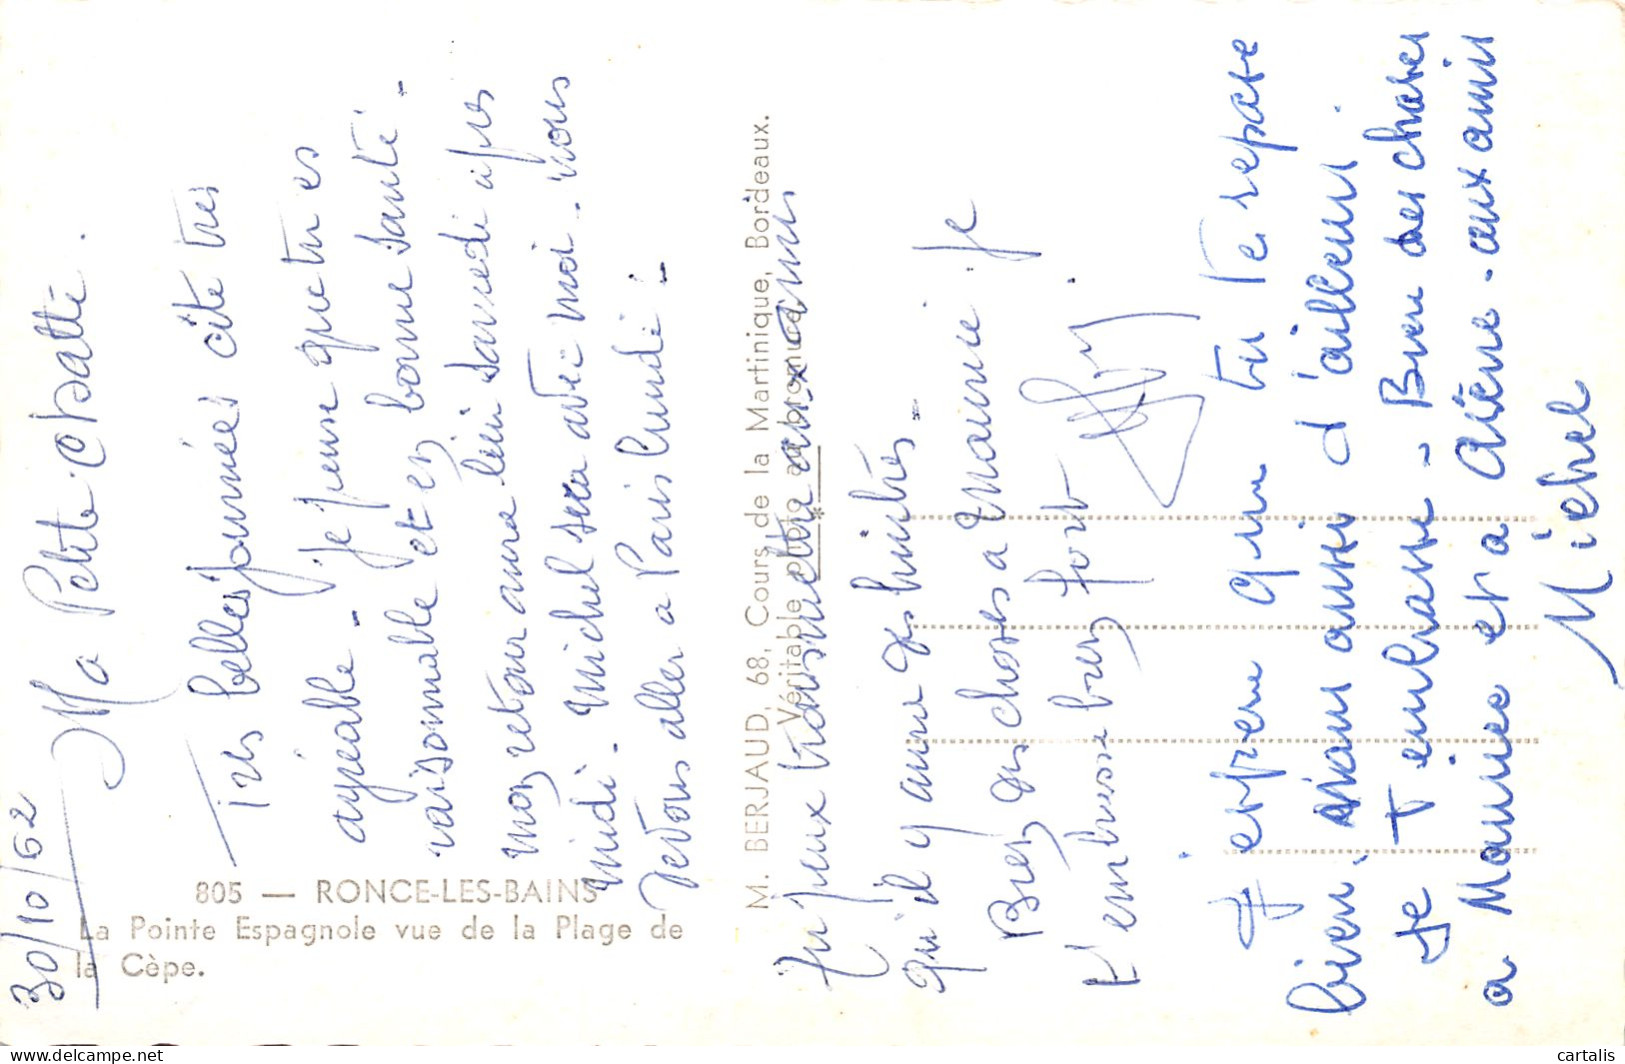 805 — RONCE-LES-BAINS
La Pointe Espagnole vue de la Plage de
la Cèpe.
M. BERJAUD, 68, Cours de la Martinique, Bordeaux.
Véritable photo au bromure
30/10/62
Ma Petite Chatte.
Très belles journées cité très
agréable - Je pense que tu es
raisonnable et en bonne santé -
mon retour aura lieu samedi après
midi. Michel sera avec moi. nous
devons aller a Paris lundi -
Tu peux transmettre aux amis
qu'il y aura des huitres -
Bien des choses a Mamie. Je
t'embrasse bien fort.
J'espère que tu te repose
bien, aussi d'ailleurs.
Je t'embrasse - Bien des choses
a Mamie et a Arlène - aux amis
Michel
cartalis